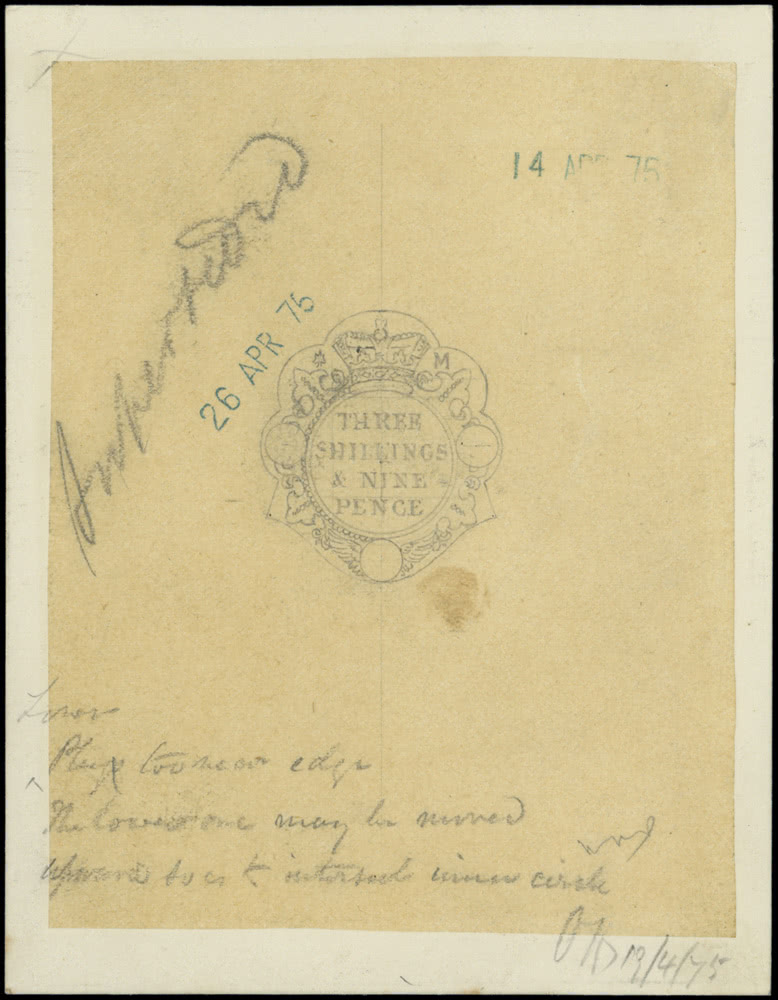 14 APR 75
26 APR 75
M
THREE
SHILLINGS
& NINE
PENCE
Lower
Plug too near edge
The lower one may be moved
upward so as to intersect inner circle
19/4/75